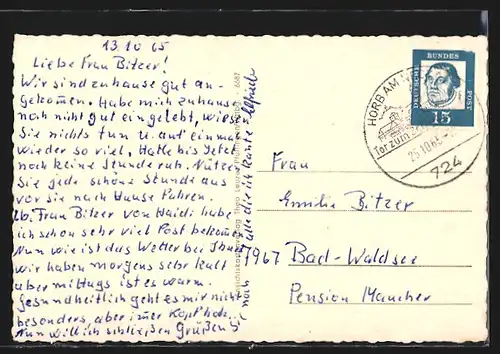 13.10.65
Liebe Frau Bitzer!
Wir sind zuhause gut an-
gekommen. Habe mich zuhaus
noch nicht gut eingelebt, wissen
Sie nichts tun u. auf einmal
wieder so viel. Hatte bis jetzt
noch keine Stunde ruh. Nützen
Sie jede schöne Stunde aus
vor sie nach Hause fahren.
Lb. Frau Bitzer von Haidi habe
ich schon sehr viel Post bekomm
Nun wie ist das Wetter bei Ihnen
wir haben morgens sehr kalt
aber mittags ist es warm.
Gesundheitlich geht es mir nicht
besonders, aber imer Kopf hoch.
Nun will ich schließen Grüßen Sie
noch alle die ich kante Elfriede
HORB AM
Tor zum
25.10.65
724
DEUTSCHE BUNDESPOST
15
Frau
Emilie Bitzer
7967 Bad-Waldsee
Pension Maucher